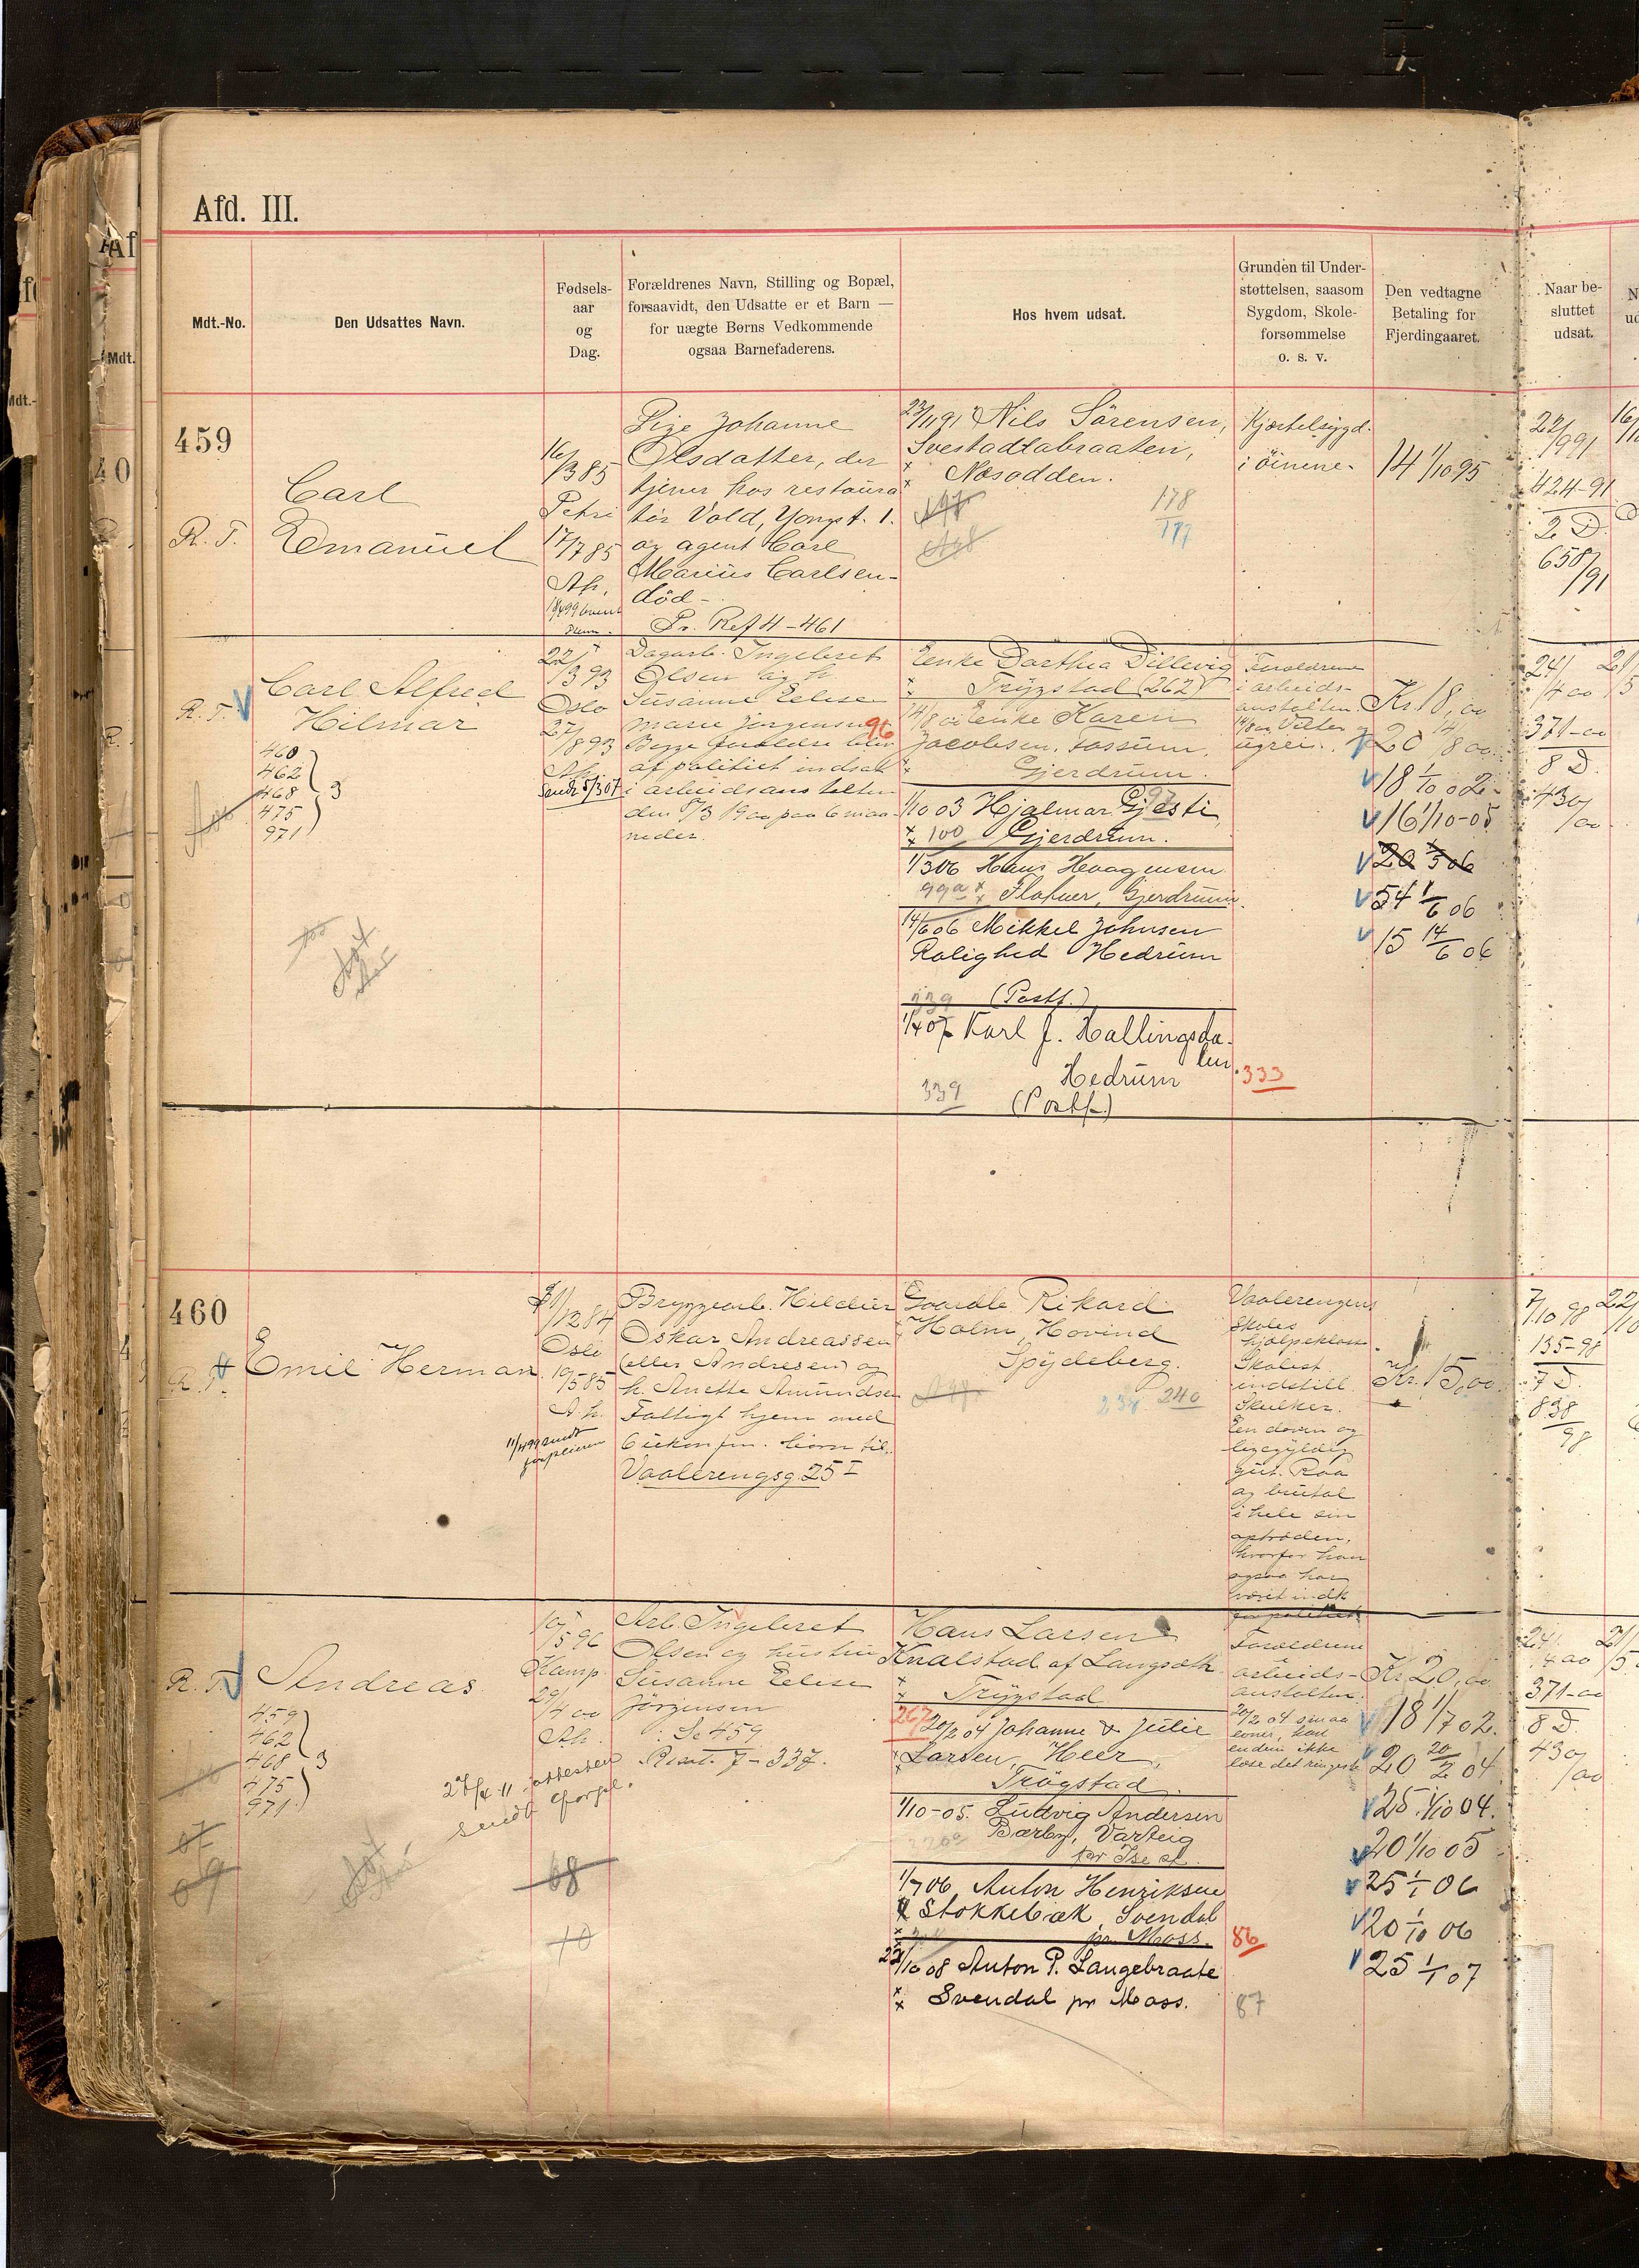 Afd. III.
Mdt.-No.
Den Udsattes Navn.
Fødsels-
aar
og
Dag.
Forældrenes Navn, Stilling og Bopæl,
forsaavidt, den Udsatte er et Barn —
for uægte Børns Vedkommende
ogsaa Barnefaderens.
Hos hvem udsat.
Grunden til Under-
støttelsen, saasom
Sygdom, Skole-
forsømmelse
o. s. v.
Den vedtagne
Betaling for
Fjerdingaaret.
Naar be-
sluttet
udsat.
459
R. T.
Carl
Emanuel
16/3 85
Petri
17/7 85
Ah.
Pige Johanne
Olsdatter, der
tjener hos restaura
tör Vold, Yongst. 1.
og agent Carl
Marius Carlsen-
död-
Pr. Ref 4-461
23/11 91 Nils Sörensen,
Svestadtabraaten,
Nesodden.
178
177
Kjertelsygd.
i öinene.
14 1/10 95
22/9 91
424-91
2 D.
658/91
R. T.
Carl Alfred
Hilmar
460
462
468
475
971
3
22/3 93
Oslo
27/8 93
Ah.
Sendt 5/3 07
Dagarb. Ingebret
Olsen og h.
Susanne Eelise
Marie Jörgensen
Begge foreldre blev
af politiet indsat
i arbeidsanstalten
den 5/3 1900 paa 6 maa-
neder.
96
Enke Dorthea Dillevig
Trygstad (262)
14/8 00 Enke Karen
Jacobsen, Fossum,
Gjerdrum.
97
1/10 03 Hjalmar Gjesti
100 Gjerdrum.
1/3 06 Hans Haagensen
99a Flatner, Gjerdrum.
14/6 06 Mikkel Johnsen
Rolighed Hedrum
339 (Postf.)
1/4 07 Karl J. Hallingsda-
len.
Hedrum
339 (Postf.)
333
Foreldrene
i arbeids-
anstalten.
Kr. 18,00
20 14/8 00.
18 1/10 02.
16 1/10-05
20 1/3 06
54 1/6 06
15 14/6 06
24/4 00
371-00
8 D.
430/00
460
R. T.
Emil Herman
21/12 84
Oslo
19/5 85
A. h.
11/4 99 sendt
forpleieren
Bryggearb. Hildur
Oskar Andreassen
(eller Andresen) og
h. Anette Amundsen
Fattigt hjem med
6 ukonfm. börn til.
Vaalerengsg. 25 I
Gaardb. Rikard
Holm, Hovind
Spydeberg.
240
Vaalerengens
skoles
hjælpeklasse.
Skolest.
indstill.
Skulker.
En doven og
ligegyldig
gut. Raa
og brutal
i hele sin
optræden,
hvorfor han
ogsaa har
været indk.
for politiet
Kr. 15,00.
7/10 98
135-98
7 D.
838/98
R. T.
Andreas
459
462
468
475
971
3
10/5 96
Kamp.
29/4 00
Ah.
27/4 11 attesten
sendt forpl.
Arb. Ingebret
Olsen og hustru
Susanne Eelise
Jörgensen
Se 459
Reml. 7-337.
67
69
68
70
Hans Larsen
Knalstad af Langsæth
Trygstad
267
20/2 04 Johanne & Julie
Larsen, Heer,
Trögstad.
1/10-05. Ludvig Andersen
Bærby, Varteig
pr Ise st.
1/7 06, Anton Henriksen
Stokkebæk, Svendal
pr. Moss.
86
22/10 08 Anton P. Langebraate
Svendal pr Moss.
87
Foreldrene
arbeids-
anstalten.
20/2 04 smaa
evner, kan
endnu ikke
læse det ringeste
Kr. 20,00
18 1/7 02.
20 20/2 04
25 1/10 04.
20 1/10 05
25 1/1 06
20 1/10 06
25 1/1 07
24/4 00
371-00
8 D.
430/00